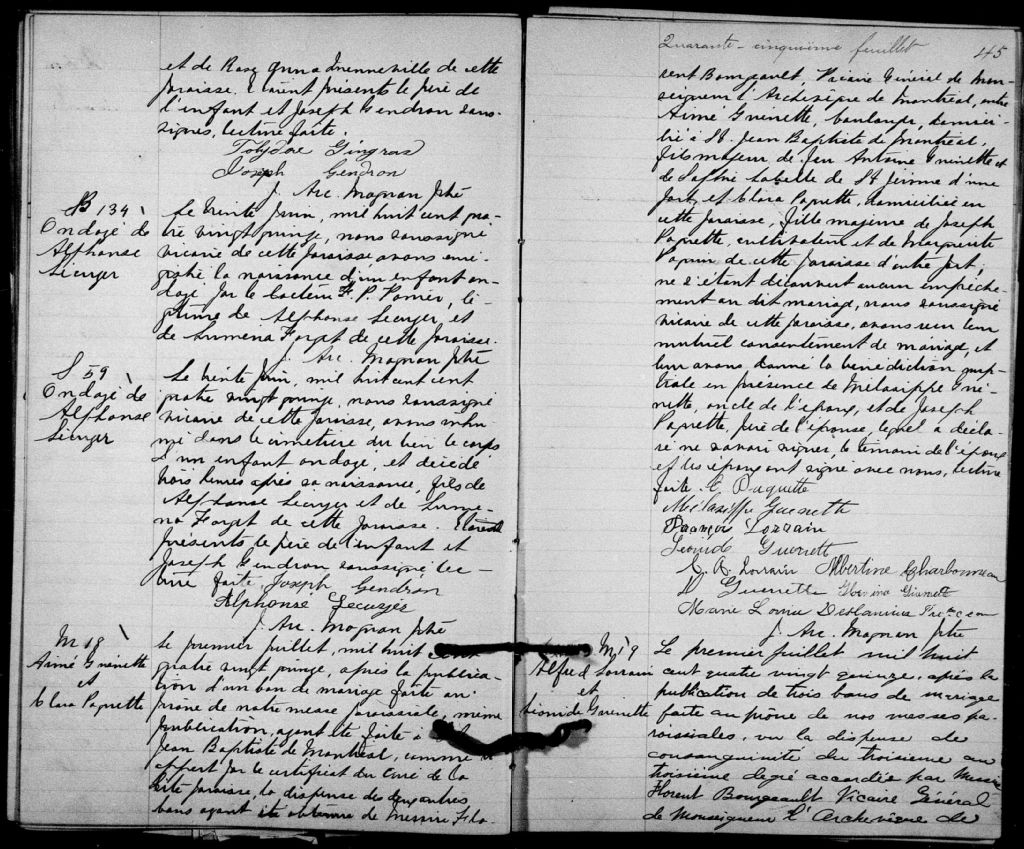 et de Rose Anna Quenneville de cette
paroisse. Etaient présents le père de
l'enfant et Joseph Gendron sous-
signés, lecture faite.
Polydore Gingras
Joseph Gendron
J. Arc. Magnan Ptre
B 134
Ondoyé de
Alphonse
Lecuyer
Le trente Juin, mil huit cent qua-
tre vingt quinze, nous soussigné
vicaire de cette paroisse avons enre-
gistré la naissance d'un enfant on-
doyé par le Docteur F. P. Poirier, lé-
gitime de Alphonse Lecuyer, et
de Lumena Forget de cette paroisse.
J. Arc. Magnan Ptre
S 59
Ondoyé de
Alphonse
Lecuyer
Le trente Juin, mil huit cent cent
quatre vingt quinze, nous soussigné
vicaire de cette paroisse, avons inhu-
mé dans le cimetière du lieu le corps
d'un enfant ondoyé, et décédé
trois heures après sa naissance, fils de
Alphonse Lecuyer et de Lume-
na Forget de cette paroisse. Etaient
présents le père de l'enfant et
Joseph Gendron soussigné lec-
ture faite Joseph Gendron
Alphonse Lecuyer
J. Arc. Magnan Ptre
M 18
Aimé Guénette
et
Clara Paquette
Le premier juillet, mil huit cent
quatre vingt quinze, après la publica-
tion d'un ban de mariage faite au
prône de notre messe paroissiale, même
publication ayant été faite à St
Jean Baptiste de Montréal, comme il
appert par le certificat du Curé de la
dite paroisse, la dispense des deux autres
bans ayant été obtenue de Messire Flo-
Quarante-cinquième feuillet 45
rent Bourgeault, Vicaire Général de Mon-
seigneur l'Archevêque de Montréal, entre
Aimé Guénette, boulanger, domici-
lié à St. Jean Baptiste de Montréal,
fils majeur de feu Antoine Guénette et
de Labelle de St Jérome d'une
part, et Clara Paquette, domiciliée en
cette paroisse, fille majeure de Joseph
Paquette, cultivateur et de Marguerite
Papin de cette paroisse d'autre part;
ne s'étant découvert aucun empêche-
ment au dit mariage, nous soussigné
vicaire de cette paroisse, avons reçu leur
mutuel consentement de mariage, et
leur avons donné la bénédiction nup-
tiale en présence de Mélasippe Gué-
nette, oncle de l'époux, et de Joseph
Paquette, père de l'épouse, lequel a décla-
ré ne savoir signer, le témoin de l'époux
et les époux ont signé avec nous, lecture
faite. C Paquette
Mélasippe Guenette
François Lorrain
Leonide Guenette
A. A. Lorrain Albertine Charbonneau
D Guenette Guenette
Marie Louise
J. Arc. Magnan Ptre
M 19
Alfred Lorrain
et
Léonide Guenette
Le premier juillet mil huit
cent quatre vingt quinze, après la
publication de trois bans de mariage
faite au prône de nos messes pa-
roissiales, vu la dispense de
consanguinité du troisième au
troisième degré accordée par Messire
Florent Bourgeault Vicaire Général
de Monseigneur l'Archevêque de